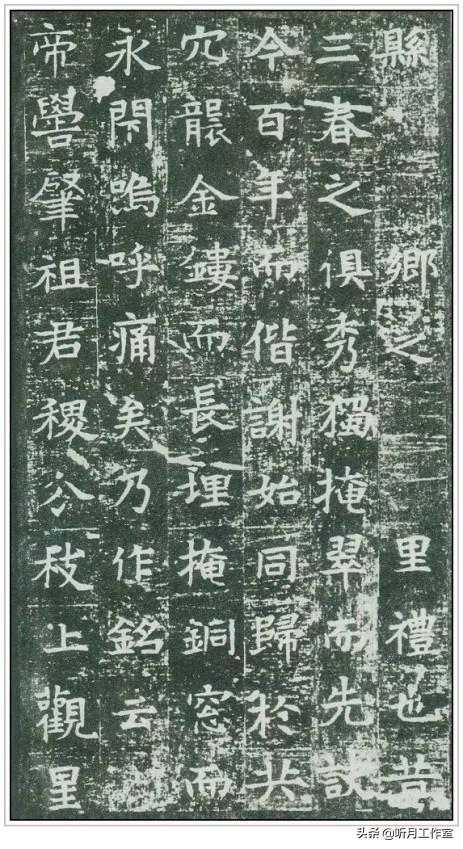 縣 鄉之 里禮也昔
三春之俱秀獨掩翠而先訣
今百年而偕謝始同歸於共
穴襲金鏤而長埋掩銅窓而
永閇嗚呼痛矣乃作銘云
帝嚳肇祖君稷分枝上觀星
头条@听月工作室